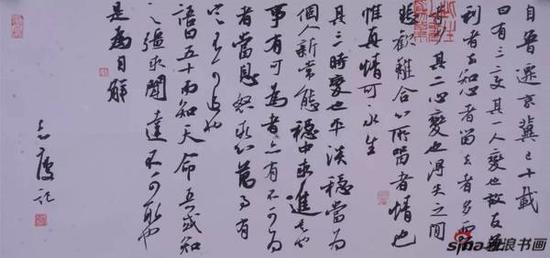 自晋迁京冀已十载
曰有三变其一人变也故友无
利者去知心者留去者多而留
者少其二心变也得失之间
悲欢离合所留者情也
惟真情可永生
其三时变也平淡稳当为
个人新常态稳中求进之
事有可为者亦有不可为
者当思 万事有
语曰五十而知天命五或知
之强求闻达不可取也
是为自解
志 记
sina新浪书画